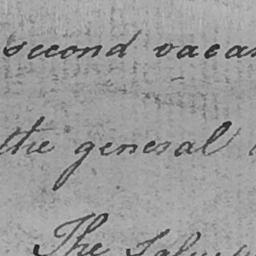 second vacan
the general
The